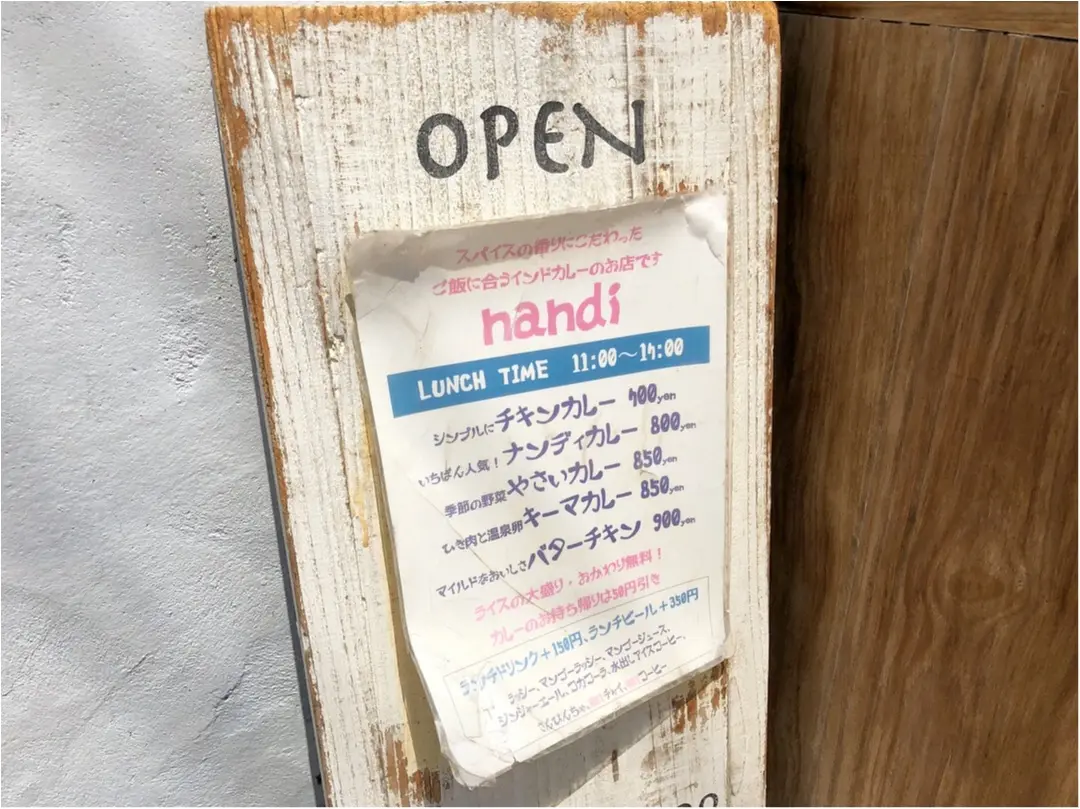 OPEN
スパイスの香りにこだわった
ご飯に合うインドカレーのお店です
nandi
LUNCH TIME 11:00〜14:00
シンプルにチキンカレー 700yen
いちばん人気！ナンディカレー 800yen
季節の野菜やさいカレー 850yen
ひき肉と温泉卵キーマカレー 850yen
マイルドなおいしさバターチキン 900yen
ライスの大盛り・おかわり無料！
カレーのお持ち帰りは50円引き
ランチドリンク＋150円、ランチビール＋350円
ラッシー、マンゴーラッシー、マンゴージュース、
ジンジャーエール、コカコーラ、水出しアイスコーヒー、
さんぴんちゃ、チャイ、コーヒー